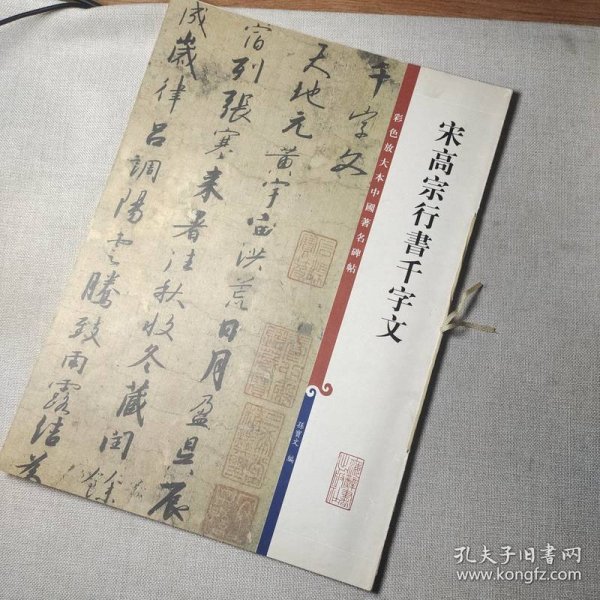 宋高宗行書千字文
彩色放大本中國著名碑帖
孫寶文 編
千字文
天地元黄宇宙洪荒日月盈昃辰
宿列張寒来暑往秋收冬藏閏餘
成歲律吕調陽雲騰致雨露结為
孔夫子旧书网
www.kongfz.com